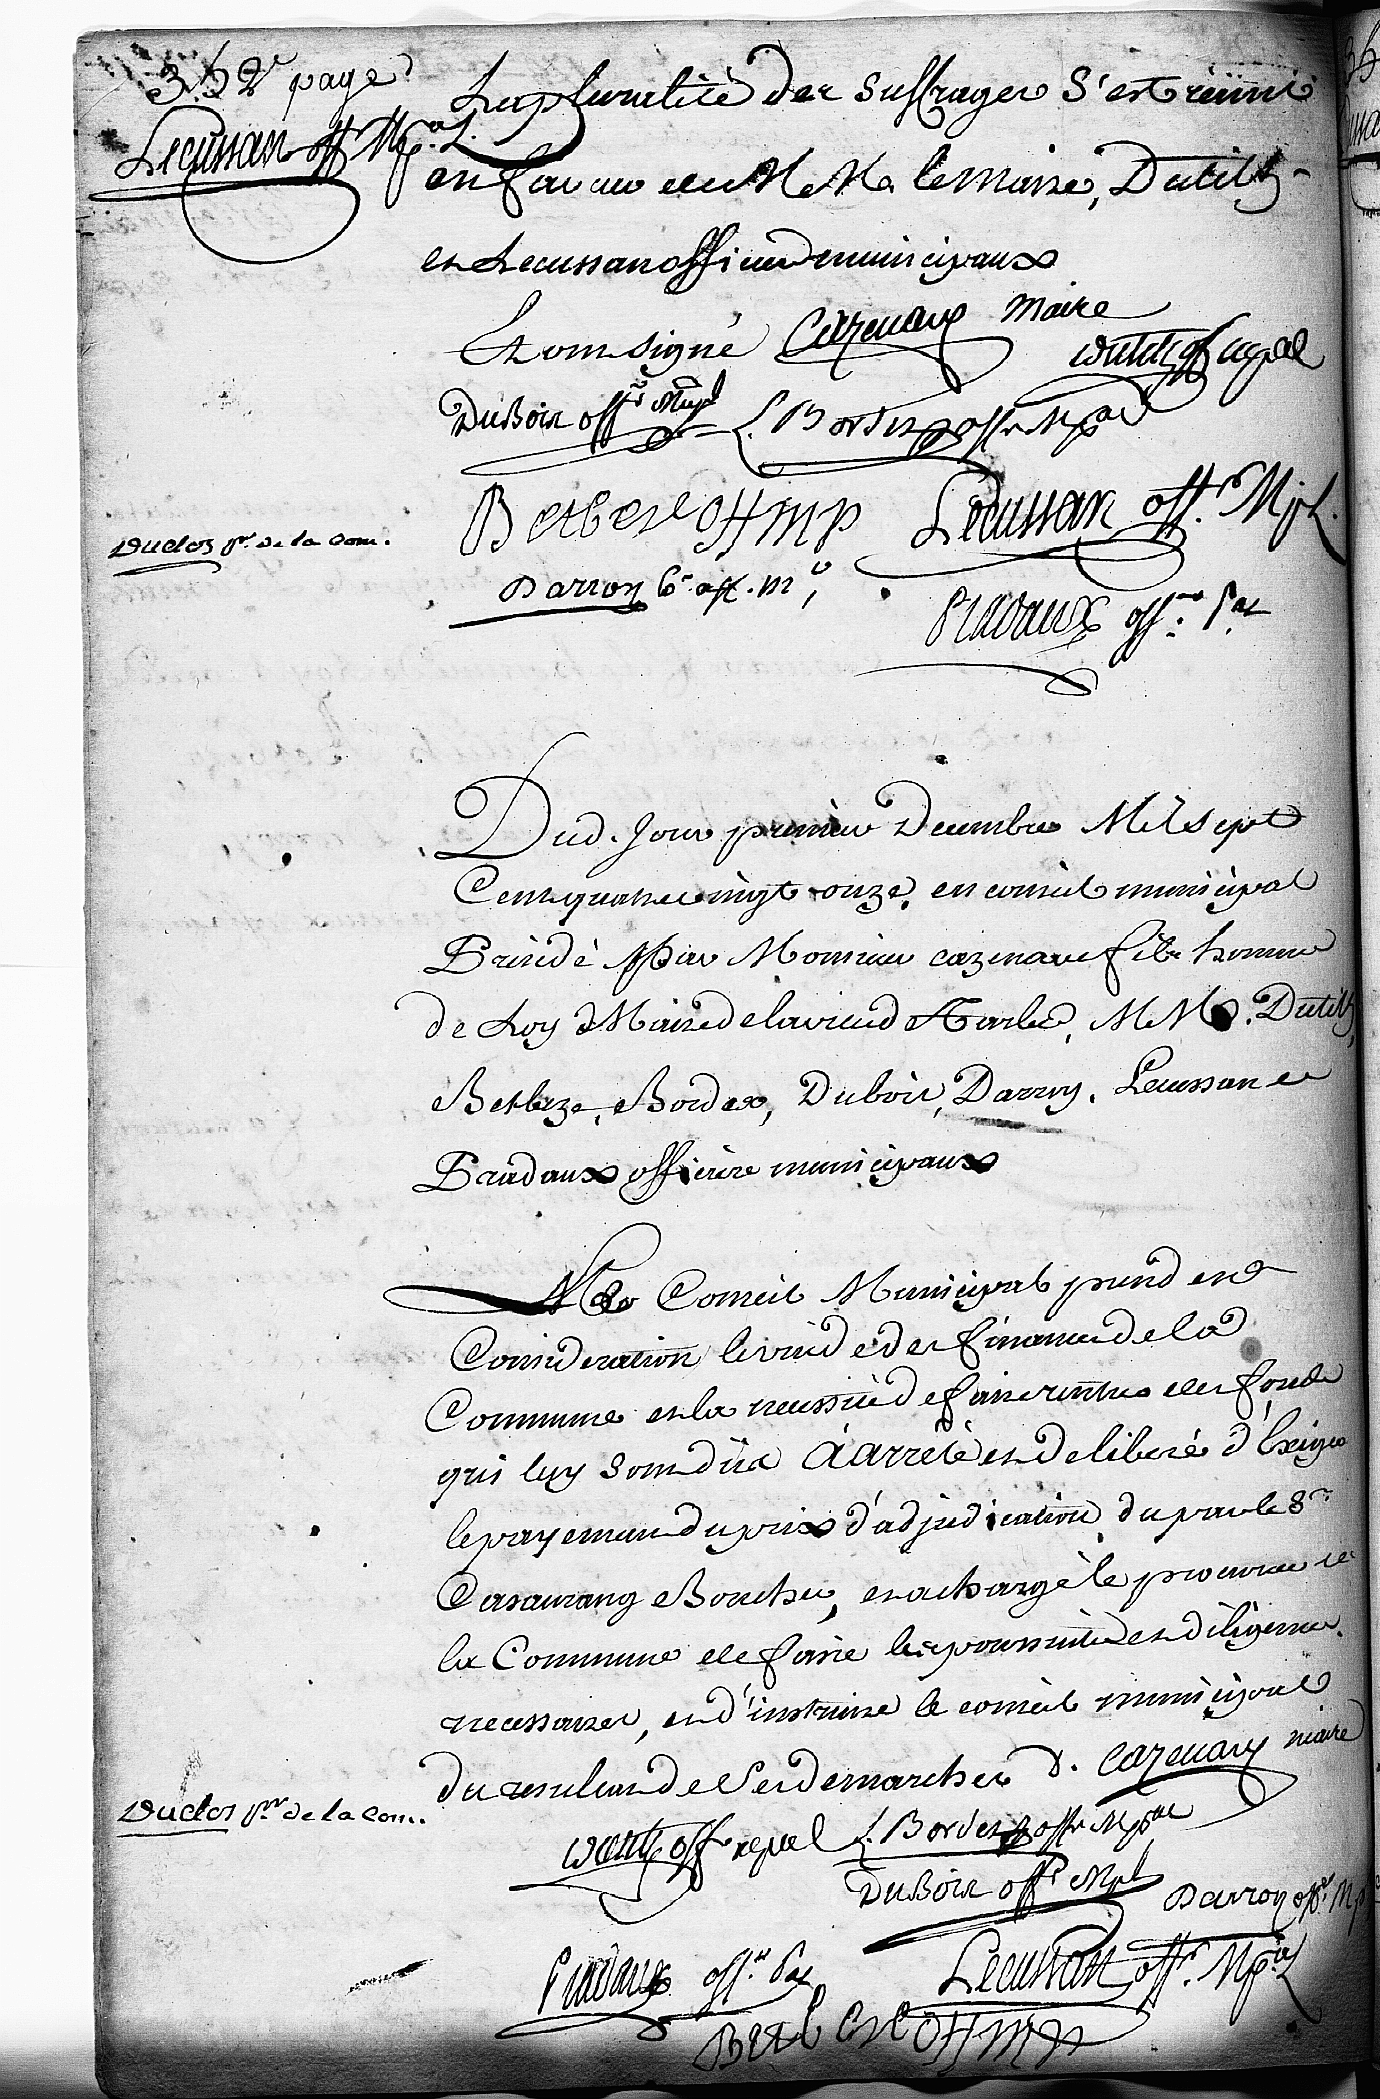 352e page
Lecussan off Mpal.
La pluralité des suffrages S'est réuni
en faveur de M Mrs le Maire, Dutilh
et Lecussan officiers municipaux
Et ont signé Cazenave Maire
Dutilh off mpal
DuBois offr Mpl L. Bordes offr Mpal
Betbeze off mp Lecussan offr. Mpl.
Duclos pr. de la com.
Darroy off. ml
Pradaux offr. pal
Dud. Jour premier Decembre Mil Sept
Cent quatre vingt onze, en conseil municipal
Présidé Par Monsieur cazenave fils homme
de Loy Maire de la ville de Tarbes, M Mrs. Dutilh,
Betbeze, Bordes, Dubois, Darroy, Lecussan et
Pradaux officiers municipaux
Le Conseil Municipal prend en
Consideration le vuide des finances de la
Commune et la necessité de faire rentrer les fonds
qui luy sont dûs À arreté et deliberé d'Exiger
le payement du prix d'adjudication du par le Sr
Casaurang Boucher, et a chargé le procureur de
la Commune de faire les poursuites et diligences
necessaires, et d'instruire le conseil municipal
du resultat de Ses demarches D. Cazenave maire
Duclos pr de la com.
Dutilh off mpal L. Bordes offr Mpal
DuBois offr Mpl Darroy offr Mp
Pradaux offr. pal Lecussan offr. Mpal
Betbeze off mp